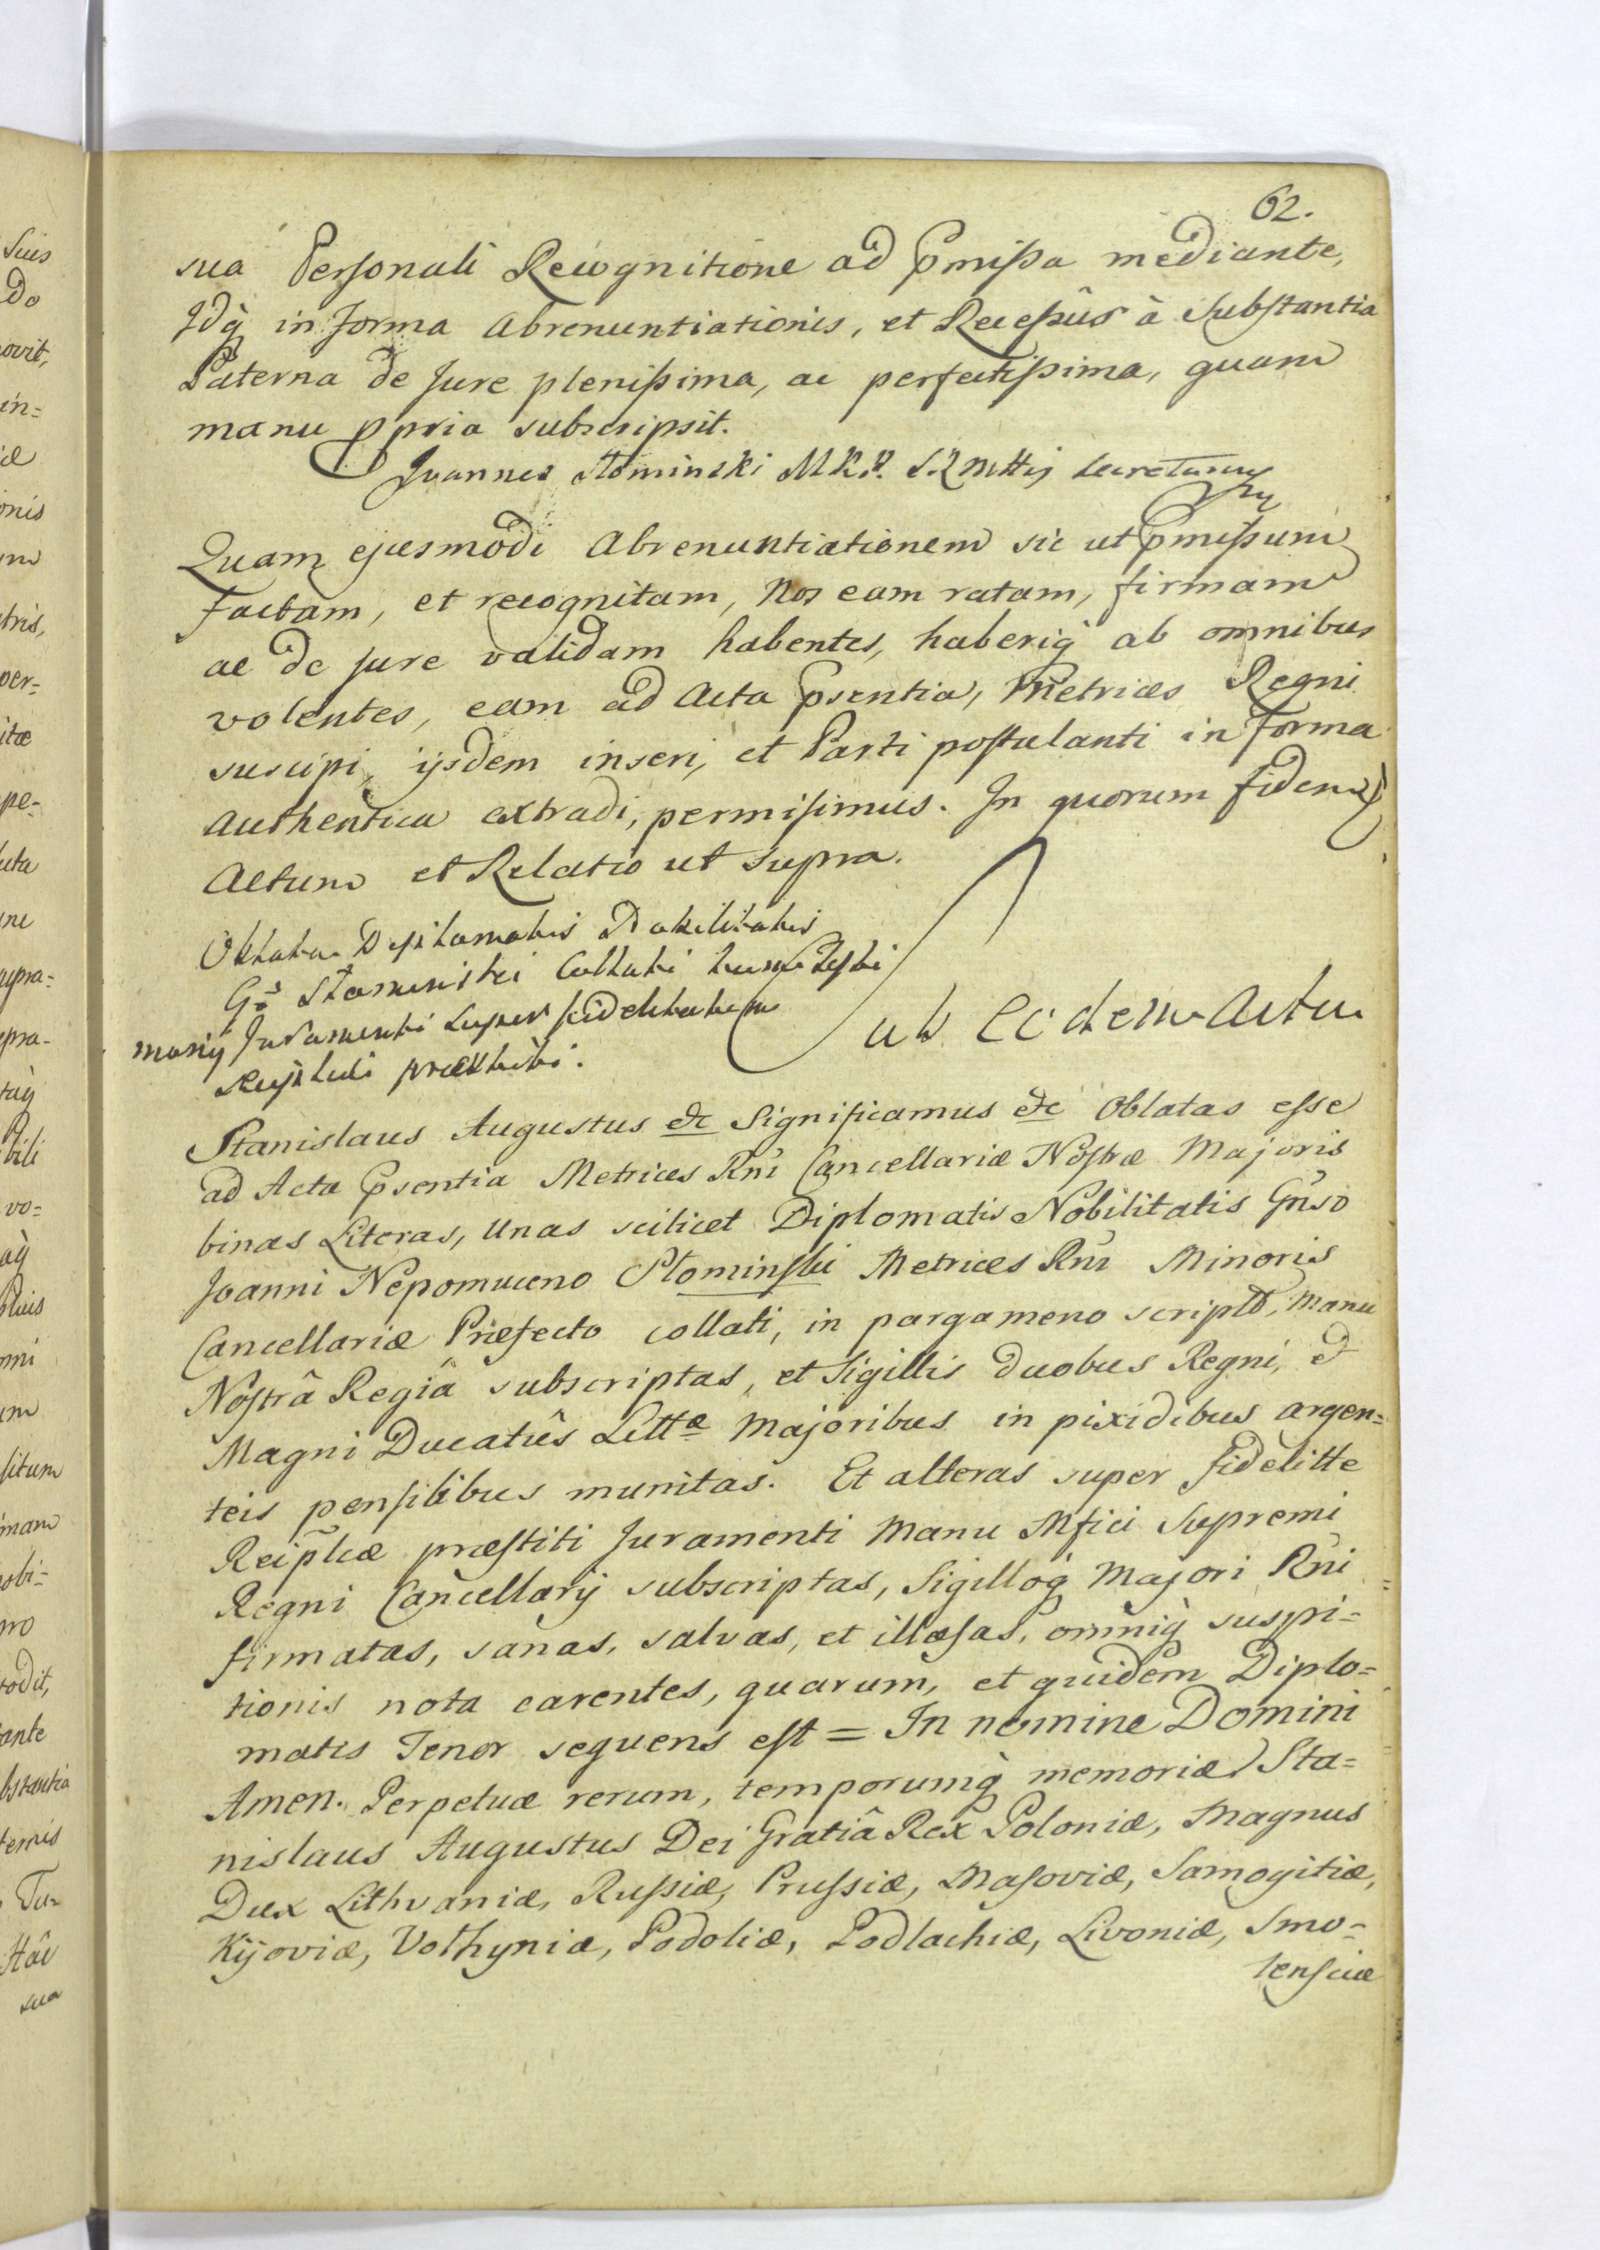 62.
sua Personali Recognitione ad pmissa mediante,
Idq̀ in forma Abrenuntiationis, et Recessûs à Substantia
Paterna de Jure plenissima, ac perfectissima, quam
manu ppria subscripsit.
Joannes Słominski MKP. S.R Mttis Secretarius
Quam ejusmodi Abrenuntiationem sic ut pmissum
factam, et recognitam, Nos eam ratam, firmam
ac de jure validam habentes, haberiq̀ ab omnibus
volentes, eam ad Acta psentia, Metrices Regni
suscipi, ijsdem inseri, et Parti postulanti in forma
Authentica extradi, permisimus. In quorum fidem
Actum et Relatio ut supra.
Oblata Diplomatis Nobilitatis
Gso Słominski Collati tum
Juramenti super fidelitatem
Reiplicæ præstiti.
Sub eodem Actu
Stanislaus Augustus etc Significamus etc Oblatas esse
ad Acta psentia Metrices Rni Cancellariæ Nostræ Majoris
binas Literas, Unas scilicet Diplomatis Nobilitatis Gnso
Joanni Nepomuceno Słominski Metrices Rni Minoris
Cancellariæ Præfecto collati, in pargameno scripto, Manu
Nostrâ Regiâ subscriptas, et Sigillis duobus Regni, et
Magni Ducatûs Littæ Majoribus in pixidibus argen=
teis pensilibus munitas. Et alteras super fidelitte
Reiplicæ præstiti Juramenti Manu Mfici Supremi
Regni Cancellarij subscriptas, Sigilloq̀ Majori Rni
firmatas, sanas, salvas, et illæsas, omniq̀ suspi=
tionis nota carentes, quarum, et quidem Diplo=
matis Tenor sequens est = In nomine Domini
Amen. Perpetuæ rerum, temporumq̀ memoriæ Sta=
nislaus Augustus Dei Gratiâ Rex Poloniæ, Magnus
Dux Lithvaniæ, Russiæ, Prussiæ, Masoviæ, Samogitiæ,
Kijoviæ, Volhyniæ, Podoliæ, Podlachiæ, Livoniæ, Smo=
lensciæ